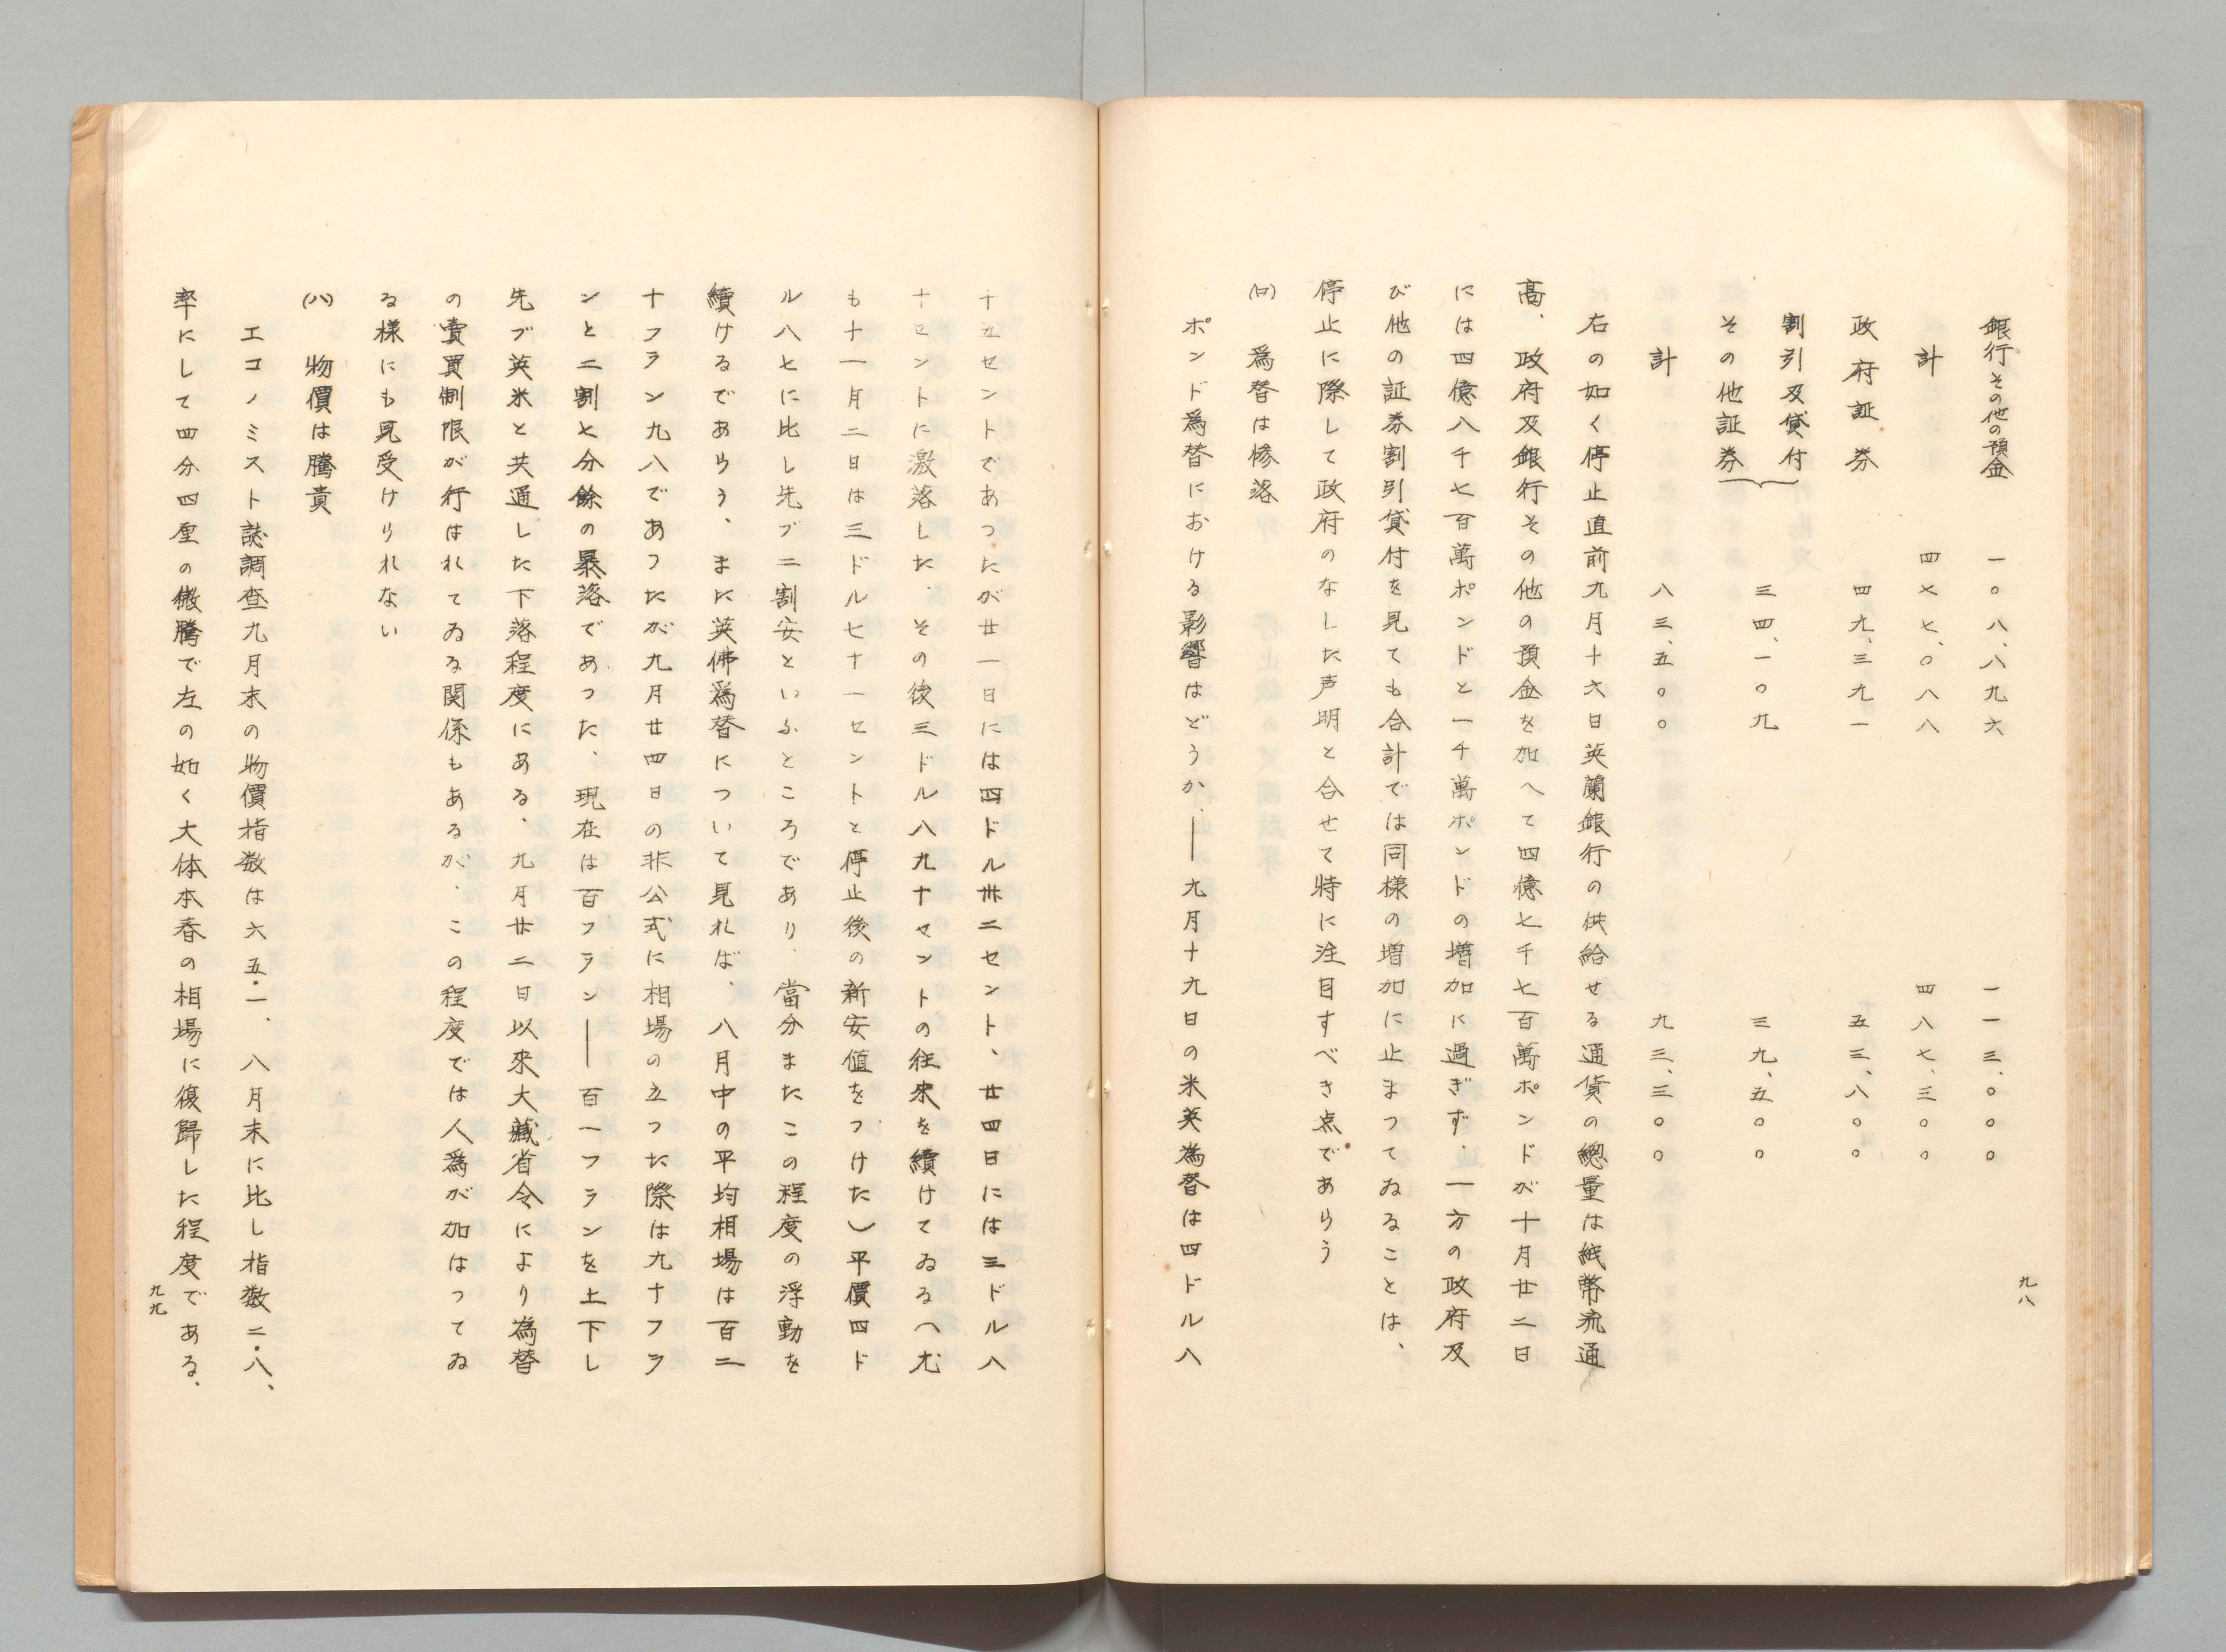 銀行その他の預金　一〇八、八九六　一一三、〇〇〇
計　四七七、〇八八　四八七、三〇〇
政府証券　四九、三九一　五三、八〇〇
割引及貸付
その他証券　三四、一〇九　三九、五〇〇
計　八三、五〇〇　九三、三〇〇
右の如く停止直前九月十六日英蘭銀行の供給せる通貨の總量は紙幣流通
高、政府及銀行その他の預金を加へて四億七千七百萬ポンドが十月廿二日
には四億八千七百萬ポンドと一千萬ポンドの増加に過ぎず、一方の政府及
び他の証券割引貸付を見ても合計では同様の増加に止まつてゐることは、
停止に際して政府のなした声明と合せて特に注目すべき点であらう
(ロ)　爲替は慘落
ポンド爲替における影響はどうか、―九月十九日の米英為替は四ドル八
九八
十五セントであつたが廿一日には四ドル卅二セント、廿四日には三ドル八
十セントに激落した、その後三ドル八九十セントの往來を續けてゐる（尤
も十一月二日は三ドル七十一セントと停止後の新安値をつけた）平價四ド
ル八七に比し先づ二割安といふところであり、當分またこの程度の浮動を
續けるであらう、また英佛爲替について見れば、八月中の平均相場は百二
十フラン九八であつたが九月廿四日の非公式に相場の立つた際は九十フラ
ンと二割七分餘の暴落であつた、現在は百フラン―百一フランを上下し
先づ英米と共通した下落程度にある、九月廿二日以來大藏省令により為替
の賣買制限が行はれてゐる関係もあるが、この程度では人爲が加はつてゐ
る様にも見受けられない
(ハ)　物價は騰貴
エコノミスト誌調査九月末の物價指数は六五・一、八月末に比し指数二・八、
率にして四分四厘の微騰で左の如く大体本春の相場に復歸した程度である、
九九